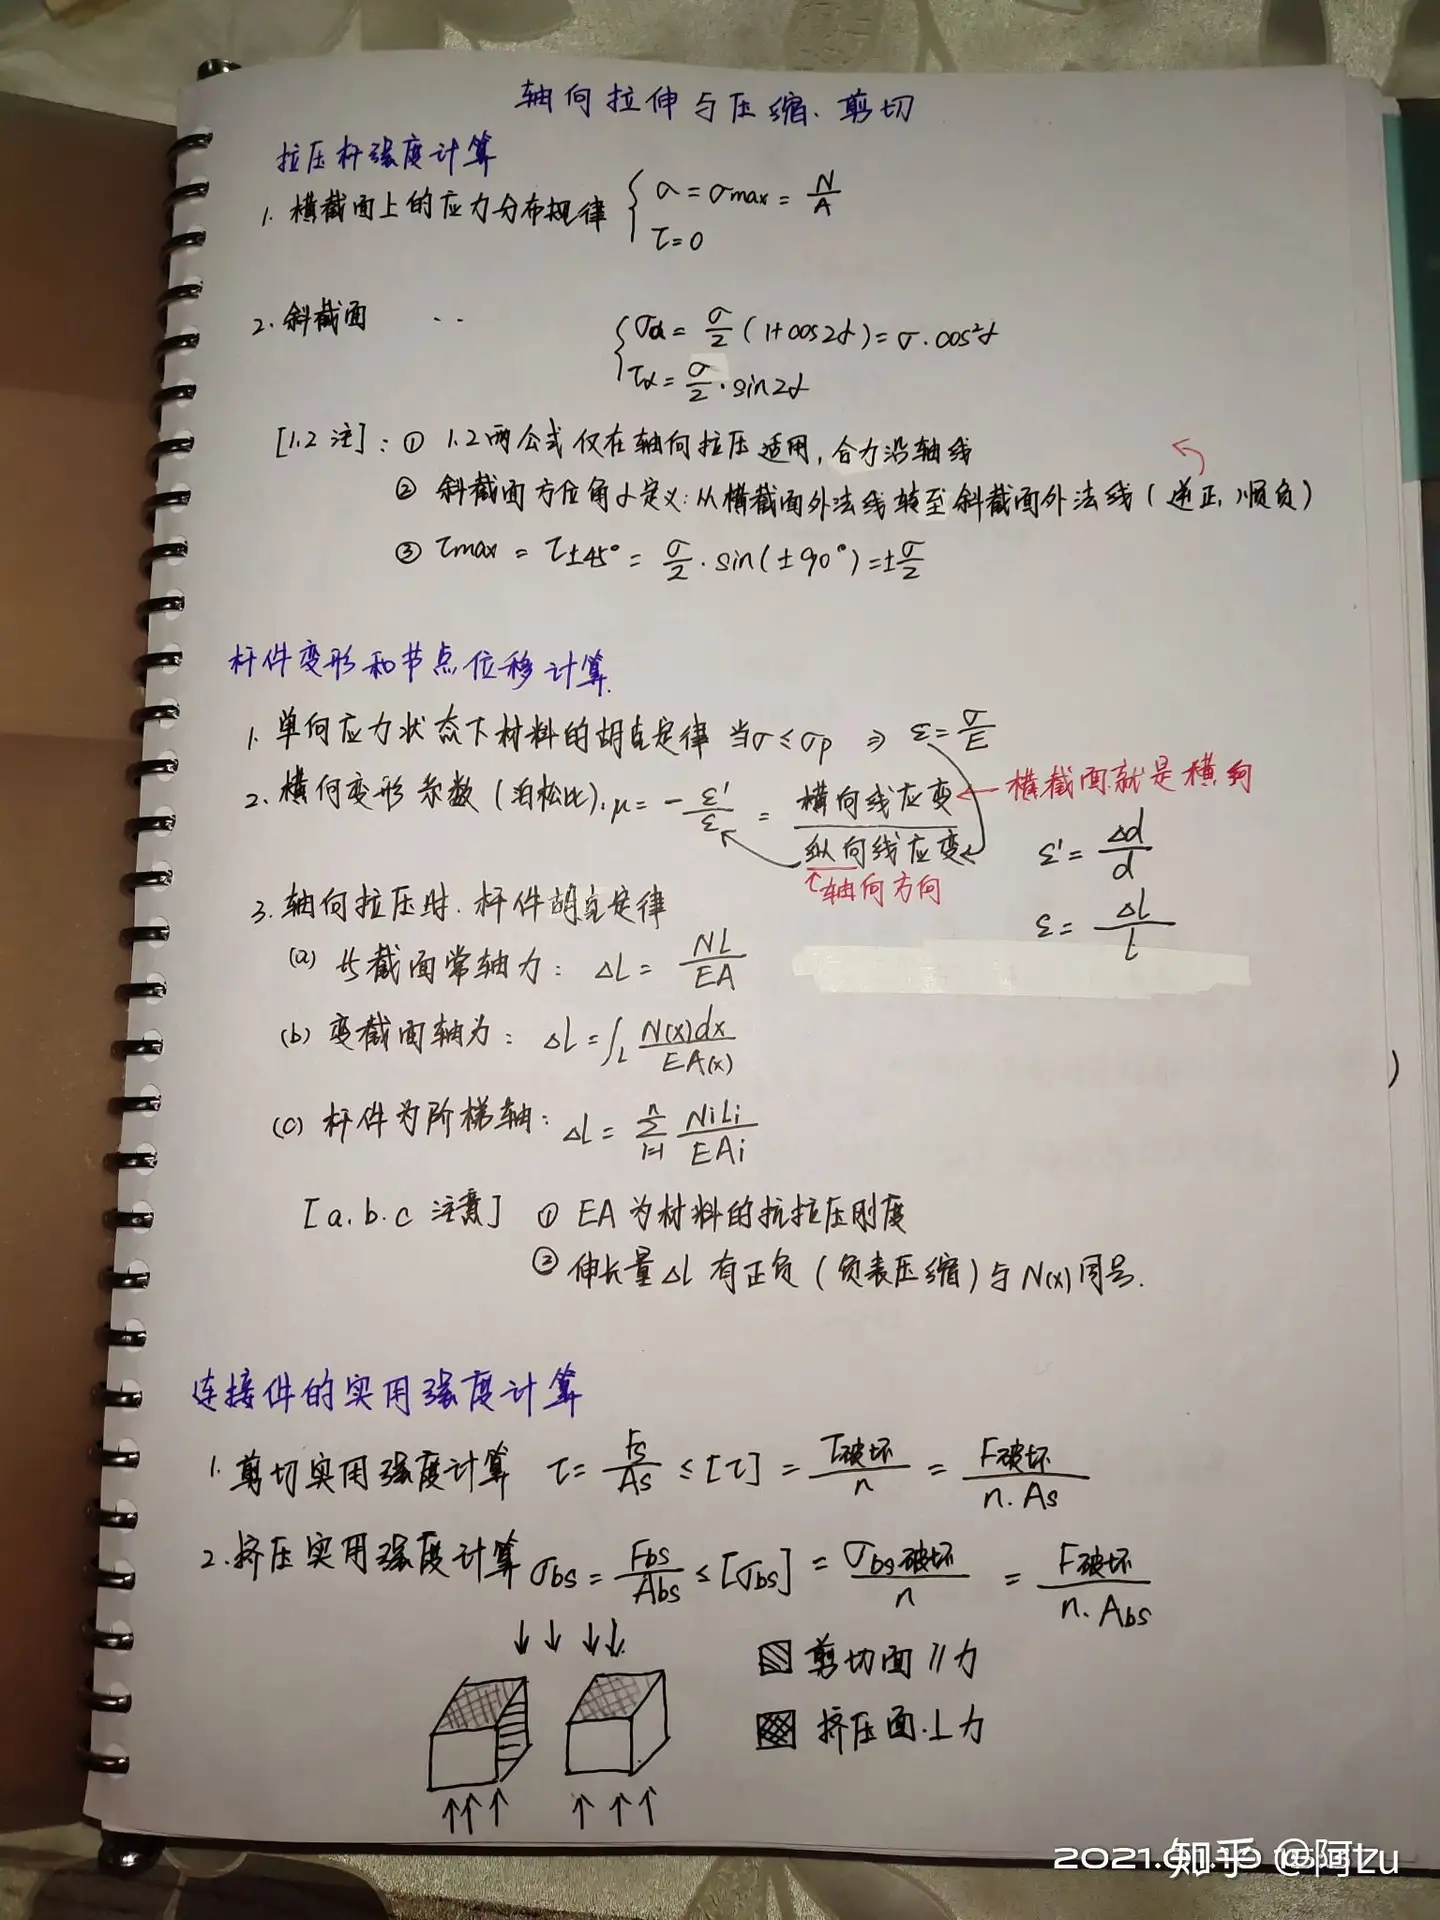 轴向拉伸与压缩.剪切
拉压杆强度计算
1. 横截面上的应力分布规律 { σ = σmax = N/A
τ=0
2. 斜截面 .. { σα = σ/2 (1+cos2α) = σ·cos²α
τα = σ/2 · sin2α
[1.2 注]: ① 1.2两公式仅在轴向拉压适用, 合力沿轴线
② 斜截面方位角α定义: 从横截面外法线转至斜截面外法线 (逆正, 顺负)
③ τmax = τ±45° = σ/2 · sin(±90°) = ±σ/2
杆件变形和节点位移计算.
1. 单向应力状态下材料的胡克定律 当σ≤σp ⇒ ε=σ/E
2. 横向变形系数 (泊松比). μ = - ε'/ε = 横向线应变/纵向线应变 ← 横截面就是横向
↑轴向方向
ε' = Δd/d
ε = ΔL/L
3. 轴向拉压时. 杆件胡克定律
(a) 等截面常轴力: ΔL = NL/EA
(b) 变截面轴力: ΔL = ∫L N(x)dx/EA(x)
(c) 杆件为阶梯轴: ΔL = Σ(i=1→n) NiLi/EAi
[a.b.c 注意] ① EA为材料的抗拉压刚度
② 伸长量ΔL 有正负 (负表压缩) 与N(x)同号.
连接件的实用强度计算
1. 剪切实用强度计算 τ = Fs/As ≤ [τ] = τ破坏/n = F破坏/n.As
2. 挤压实用强度计算 σbs = Fbs/Abs ≤ [σbs] = σbs破坏/n = F破坏/n.Abs
剪切面 // 力
挤压面.⊥力
知乎 @阿Lu